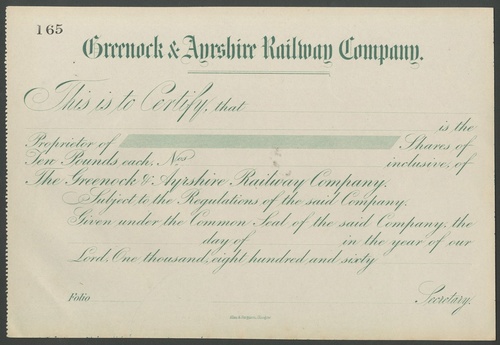 165
Greenock & Ayrshire Railway Company.
This is to Certify, that
is the
Proprietor of Shares of
Ten Pounds each, Nos inclusive, of
The Greenock & Ayrshire Railway Company,
Subject to the Regulations of the said Company.
Given under the Common Seal of the said Company, the
day of in the year of our
Lord, One thousand, eight hundred and sixty
Folio Secretary.